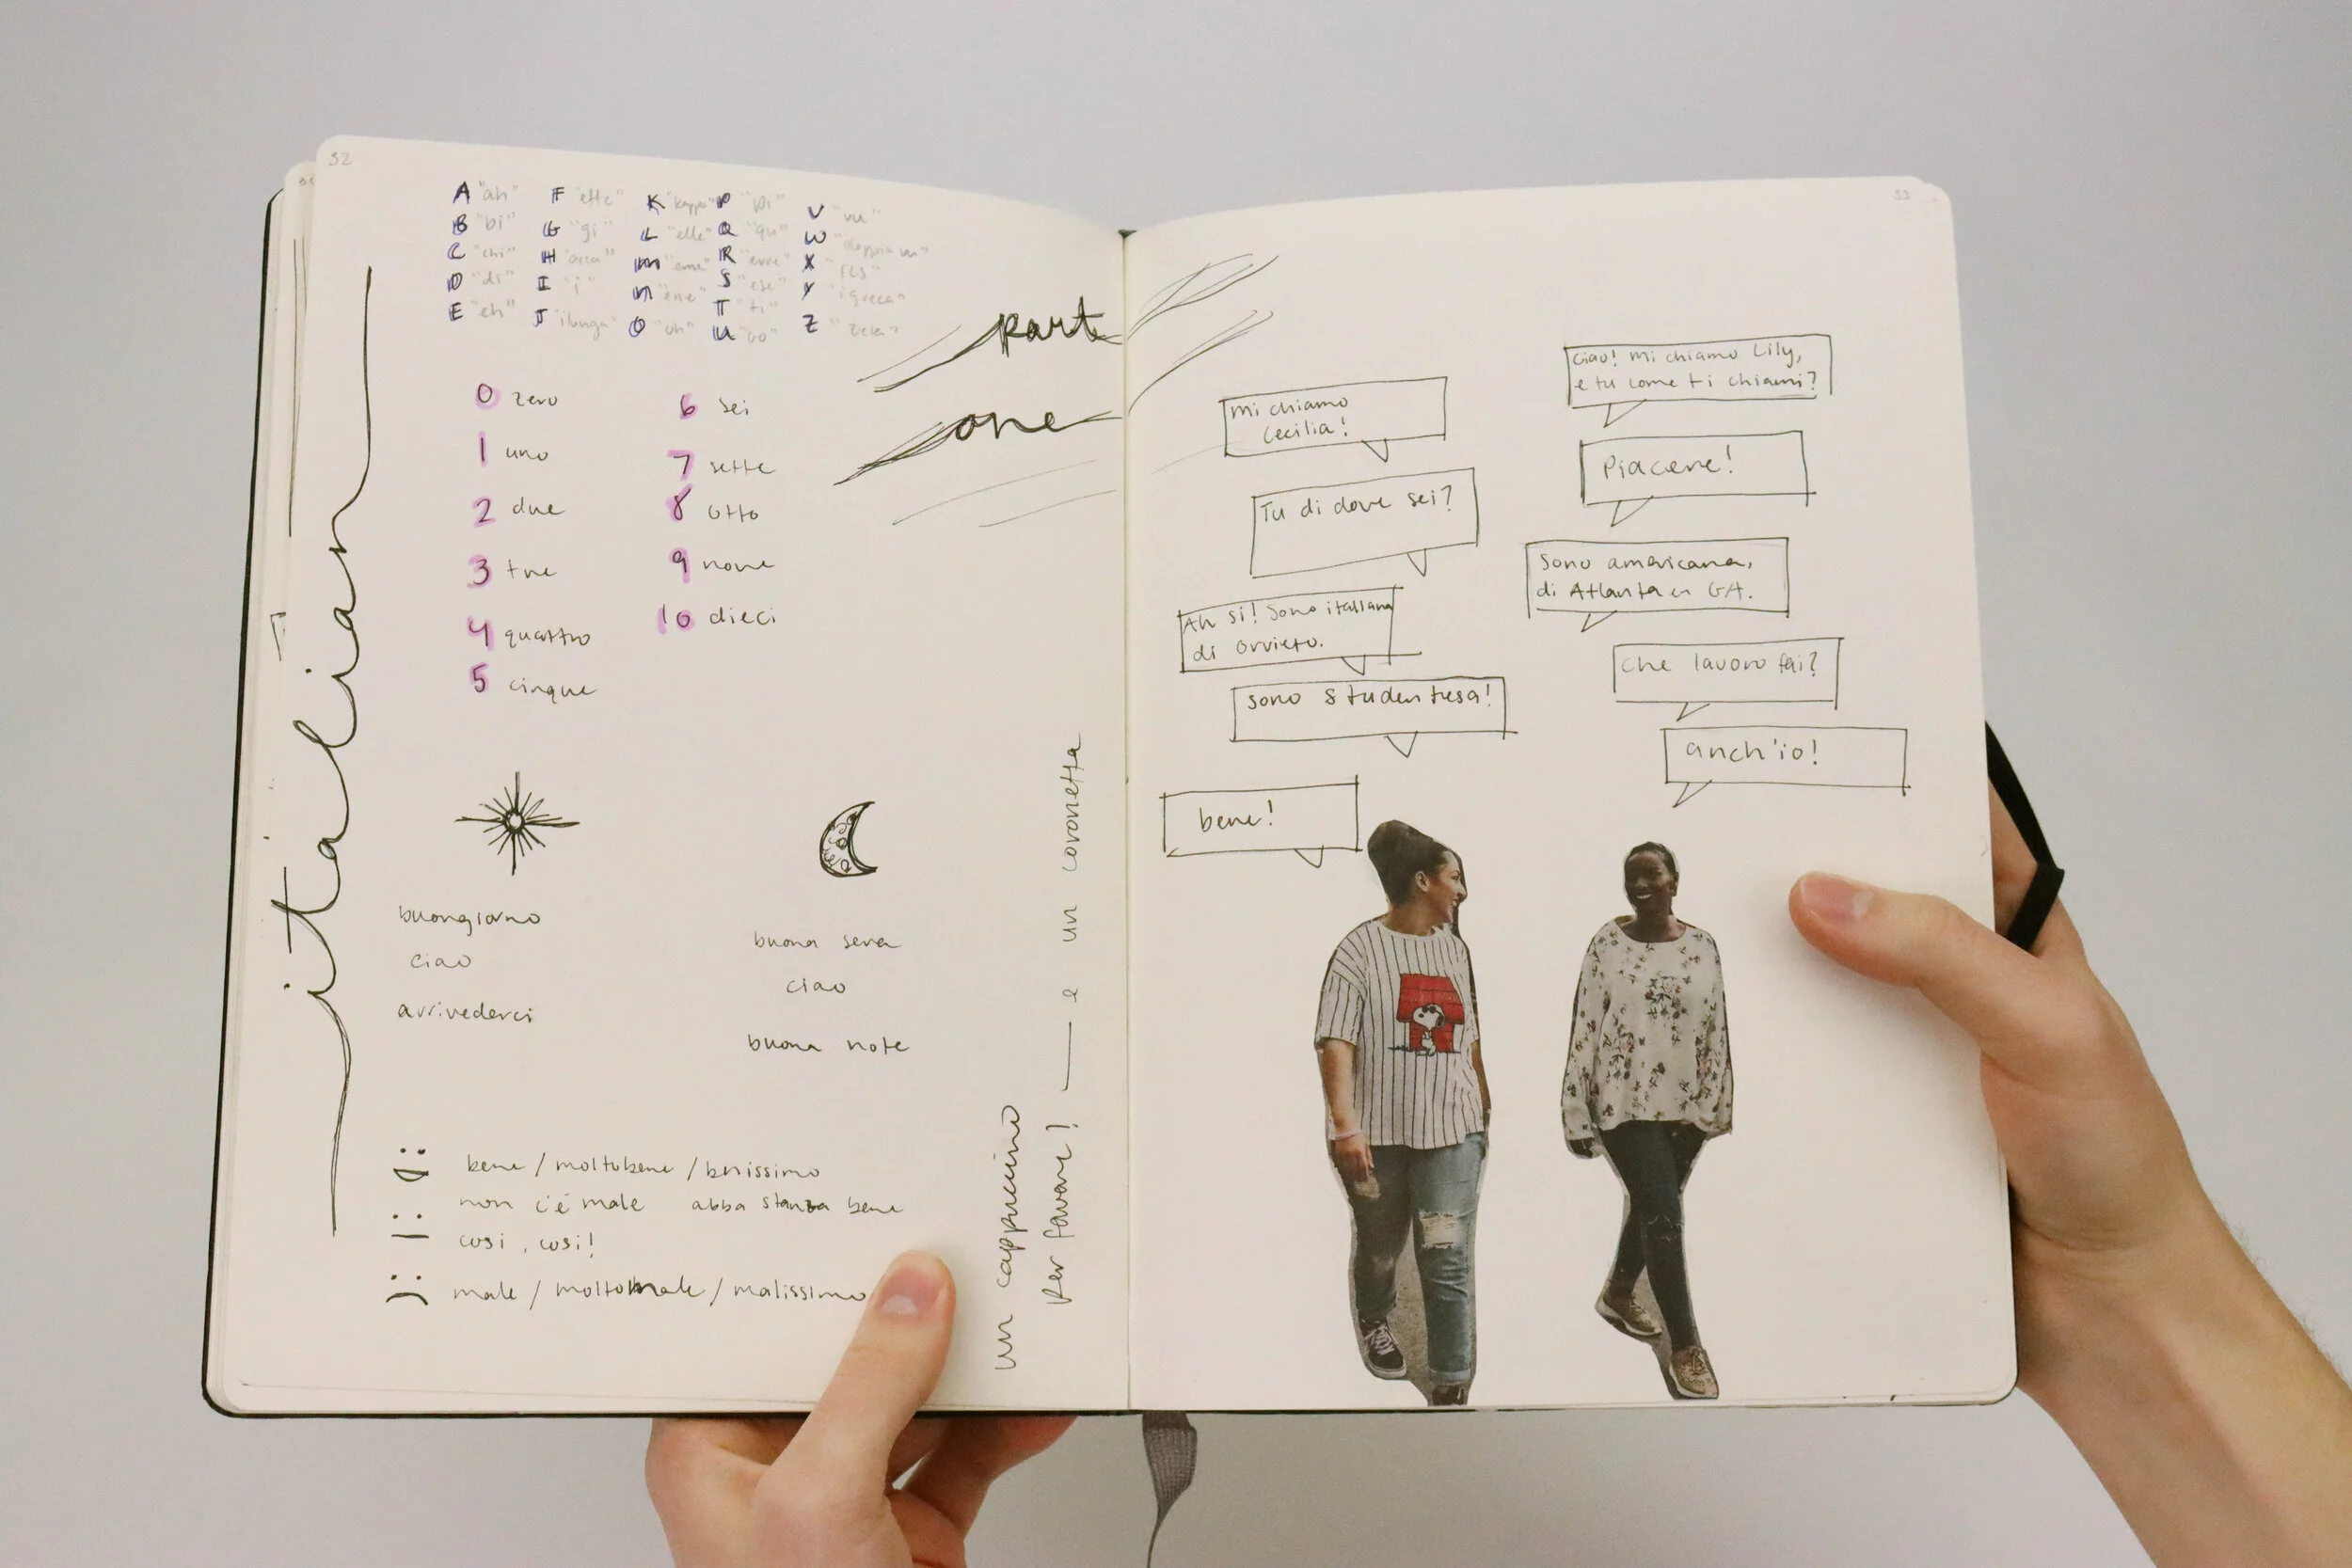 32
A "ah" F "effe" K "kappa" P "pi" V "vu"
B "bi" G "gi" L "elle" Q "qu" W "doppia vu"
C "chi" H "acca" M "eme" R "erre" X "ics"
D "di" I "i" N "ene" S "ese" Y "igreca"
E "eh" J "ilunga" O "oh" T "ti" Z "zeta"
U "oo"
part
one
italian
0 zero 6 sei
1 uno 7 sette
2 due 8 otto
3 tre 9 nove
4 quattro 10 dieci
5 cinque
buongiorno
ciao
arrivederci
buona sera
ciao
buona note
bene / moltobene / benissimo
non c'é male abba stanza bene
cosi, cosi!
male / moltomale / malissimo
un cappuccino
per favore! — e un coronetta
33
Ciao! mi chiamo Lily,
e tu come ti chiami?
mi chiamo
Cecilia!
Piacere!
Tu di dove sei?
Sono americana,
di Atlanta en GA.
Ah si! Sono italiana
di orvieto.
che lavoro fai?
sono studentesa!
anch'io!
bene!